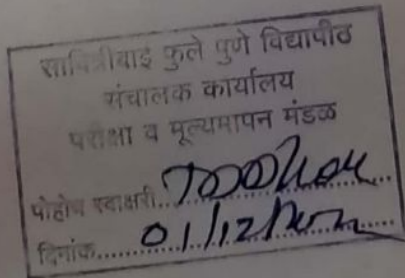 सावित्रीबाई फुले पुणे विद्यापीठ
संचालक कार्यालय
परीक्षा व मूल्यमापन मंडळ
पोहोच स्वाक्षरी..................
दिनांक..... 01/12/